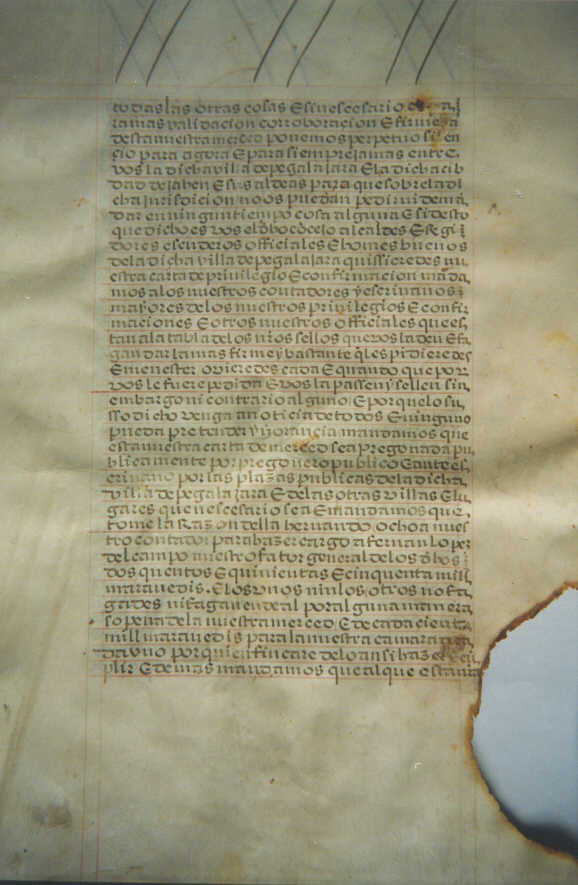 todas las otras cosas E si nescesario
ramas validacion corroboracion E firmeza
desta nuestra merced ponemos perpetuo silen
çio para agora E para siempre jamas entre
vos la dicha villa de pegalajara E la dicha cib
dad de jahen E sus aldeas para que sobre la di
cha Jurisdicion no os puedan pedir ni demā
dar en ningun tiempo cosa alguna E si desto
que dicho es vos el dho cōcejo alcaldes E Regi
dores escuderos officiales E homes buenos
de la dicha villa de pegalajara quissieredes nu
estra carta de privilegio E confirmacion manda
mos a los nuestros contadores y escrivanos
mayores de los nuestros privilegios E confir
maciones E otros nuestros officiales que es
tan a la tabla de los nros sellos que vos la den E fa
gan dar la mas firme y bastante q̄ les pidieredes
E menester ovieredes cada E quando que por
vos le fuere pedida E vos la passen y sellen sin
embargo ni contrario alguno E porque lo su
sso dicho venga a noticia de todos E ninguno
pueda pretender ynorancia mandamos que
esta nuestra carta de merced sea pregonada pu
blicamente por pregonero publico E ante es
crivano por las plazas publicas de la dicha
villa de pegalajara E de las otras villas E lu
gares que nescesario sea E mandamos que
tome la Razon della hernando ochoa nues
tro contador para hazer cargo a fernan loper
del campo nuestro fator general de los dhos
dos quentos E quinientas E cinquenta mill
maravedis. E los vnos nin los otros no fa
gades ni fagan ende al por alguna manera
so pena de la nuestra merced E de cada cient
mill maravedis para la nuestra camara
da vno por quien fincare de lo ansi hazer E cun
plir E demas mandamos que al que esta nra